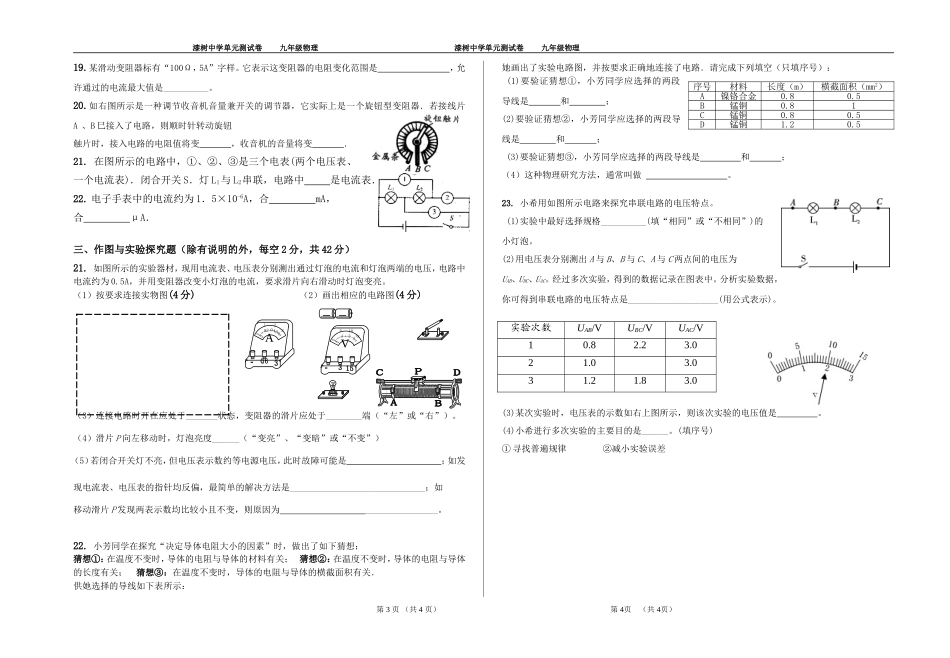 漆树中学单元测试卷 九年级物理
19.某滑动变阻器标有“100Ω,5A”字样。它表示这变阻器的电阻变化范围是________,允
许通过的电流最大值是________。
20.如右图所示是一种调节收音机音量兼开关的调节器，它实际上是一个旋钮型变阻器．若接线片
A 、B已接入了电路，则顺时针转动旋钮
触片时，接入电路的电阻值将变______，收音机的音量将变______．
旋钮触片
金属条
A B C
21. 在图所示的电路中，①、②、③是三个电表(两个电压表、
一个电流表)．闭合开关 S．灯 L₁与 L₂串联，电路中_____是电流表．
22. 电子手表中的电流约为 1．5×10⁻⁶A，合_________mA，
合_________μA．
L₁ L₂
1
2
3
S
三、作图与实验探究题（除有说明的外，每空 2 分，共 42 分）
21. 如图所示的实验器材，现用电流表、电压表分别测出通过灯泡的电流和灯泡两端的电压，电路中
电流约为 0.5A，并用变阻器改变小灯泡的电流，要求滑片向右滑动时灯泡变亮。
（1）按要求连接实物图(4 分) （2）画出相应的电路图(4 分)
A
V
- 3 15
C P D
A B
（3）连接电路时开关应处于______状态，变阻器的滑片应处于________端（“左”或“右”）。
（4）滑片 P 向左移动时，灯泡亮度______（“变亮”、“变暗”或“不变”）
（5）若闭合开关灯不亮，但电压表示数约等电源电压，此时故障可能是____________________；如发
现电流表、电压表的指针均反偏，最简单的解决方法是______________________________；如
移动滑片 P 发现两表示数均比较小且不变，则原因为__________________________________。
22. 小芳同学在探究“决定导体电阻大小的因素”时，做出了如下猜想：
猜想①：在温度不变时，导体的电阻与导体的材料有关； 猜想②：在温度不变时，导体的电阻与导体
的长度有关； 猜想③：在温度不变时，导体的电阻与导体的横截面积有关．
供她选择的导线如下表所示：
第 3 页 （共 4 页）
漆树中学单元测试卷 九年级物理
她画出了实验电路图，并按要求正确地连接了电路．请完成下列填空（只填序号）：
(1)要验证猜想①，小芳同学应选择的两段
导线是_______和_______；
(2)要验证猜想②，小芳同学应选择的两段导
线是________和_______；
(3)要验证猜想③，小芳同学应选择的两段导线是_________和_______；
（4）这种物理研究方法，通常叫做 __________________。
序号 材料 长度（m） 横截面积（mm²）
A 镍铬合金 0.8 0.5
B 锰铜 0.8 1
C 锰铜 0.8 0.5
D 锰铜 1.2 0.5
23. 小希用如图所示电路来探究串联电路的电压特点。
(1)实验中最好选择规格__________(填“相同”或“不相同”)的
小灯泡。
(2)用电压表分别测出 A 与 B、B 与 C、A 与 C 两点间的电压为
UAB、UBC、UAC。经过多次实验，得到的数据记录在图表中。分析实验数据，
你可得到串联电路的电压特点是____________________(用公式表示)。
A B C
L₁ L₂
S
实验次数 UAB/V UBC/V UAC/V
1 0.8 2.2 3.0
2 1.0 3.0
3 1.2 1.8 3.0
0 5 10 15
0 1 2 3
V
(3)某次实验时，电压表的示数如右上图所示，则该次实验的电压值是_________。
(4)小希进行多次实验的主要目的是______。(填序号)
①寻找普遍规律 ②减小实验误差
第 4页 （共 4页）